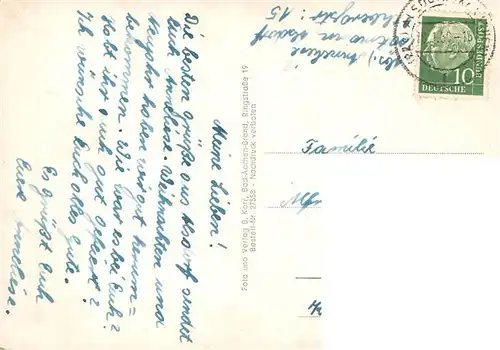 Meine Lieben!
Die besten Grüße aus Alsdorf sendet
Euch Anneliese. Weihnachten und
Neujahr haben wir gut herum-
bekommen. Wie war es bei Euch?
Habt ihr Euch gut gefeiert?
Ich wünsche Euch alles gute.
Es grüßt Euch
Eure Anneliese.
Foto und Verlag B. Korr, Bad-Aachen-Brand, Ringstraße 19
Bestell-Nr. 27558 - Nachdruck verboten
Anneliese
in Alsdorf
: 15
Familie
10
DEUTSCHE
BUNDESPOST